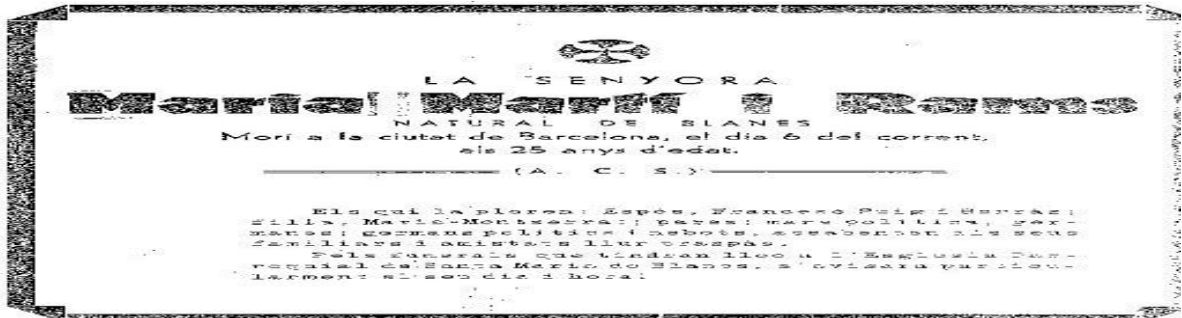 LA SENYORA
Maria Martí i Rams
NATURAL DE BLANES
Morí a la ciutat de Barcelona, el dia 6 del corrent,
als 25 anys d'edat.
(A. C. S.)
Els qui la ploren: Espòs, Francesc Puig i
filla, Maria-Montserrat; pares; mare política; ger-
mans; germans polítics i nebots, assabenten als seus
familiars i amistats llur traspàs.
Pels funerals que tindran lloc a l'Església Par-
roquial de Santa Maria de Blanes, s'avisarà particu-
larment el seu dia i hora.